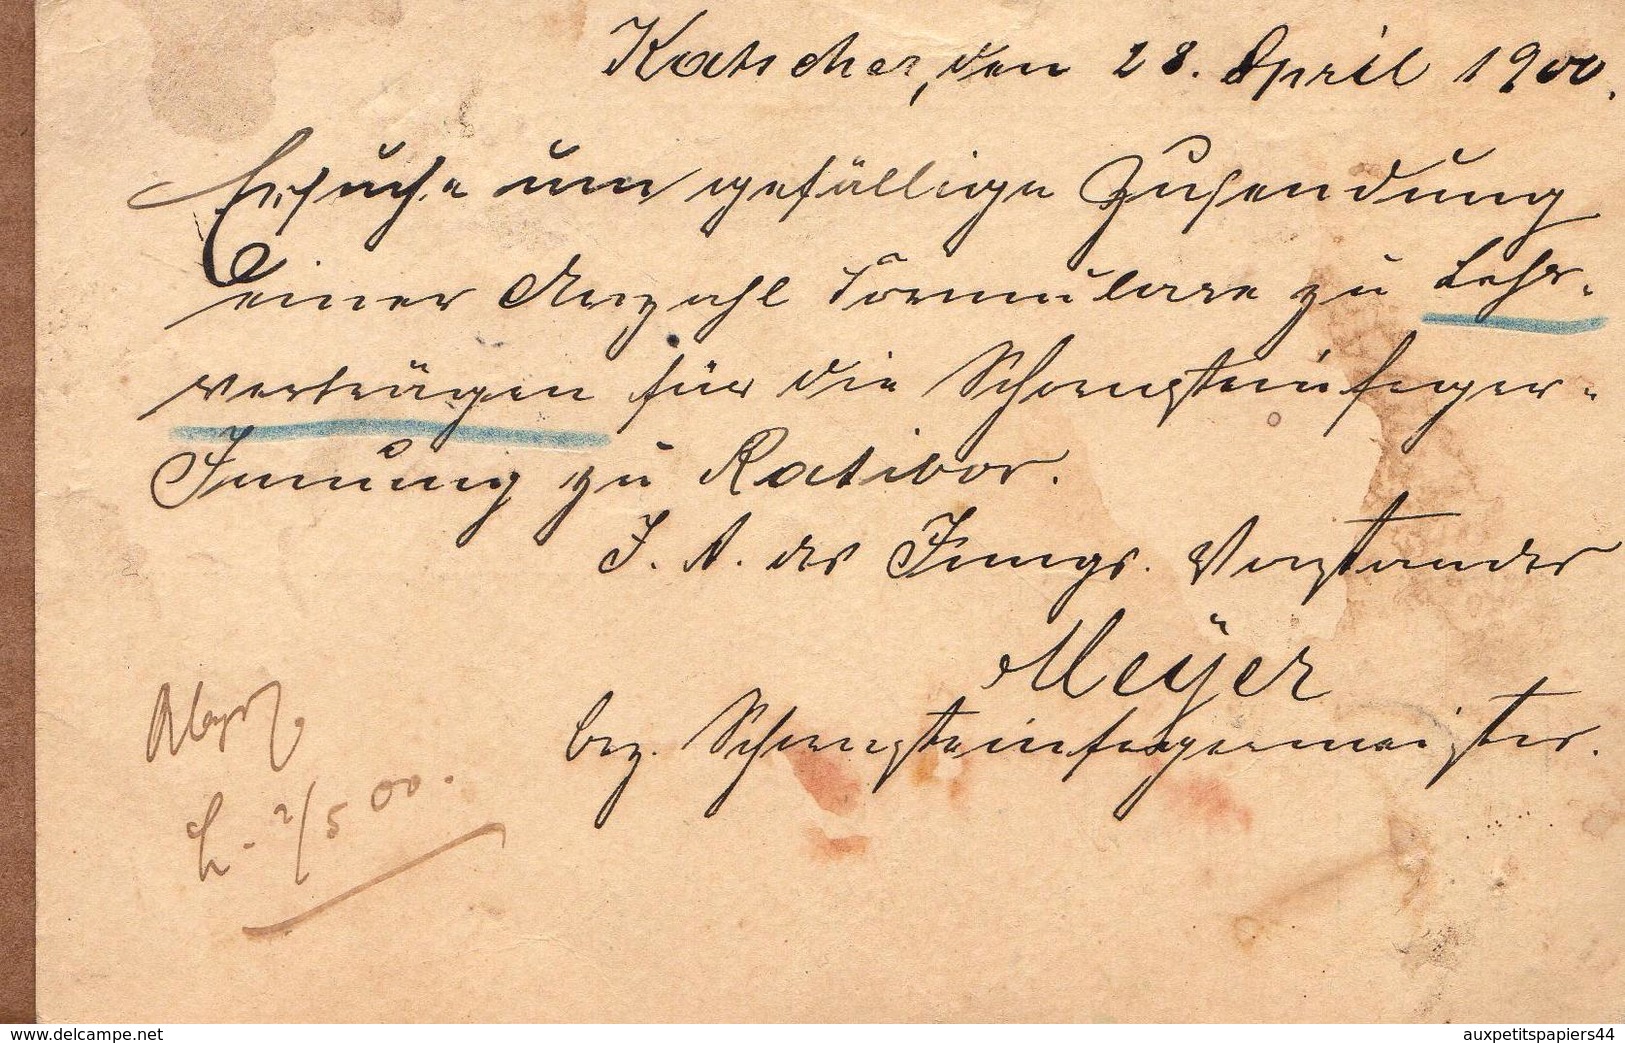 Katscher, den 28. April 1900.
Ersuche um gefällige Zusendung
einer Anzahl Formulare zu Lehr-
verträgen für die Schornsteinfeger-
Innung zu Ratibor.
I. A. des Inngs. Vorstandes
Meÿer
bez. Schornsteinfegermeister.
2/5 00.
www.delcampe.net
auxpetitspapiers44